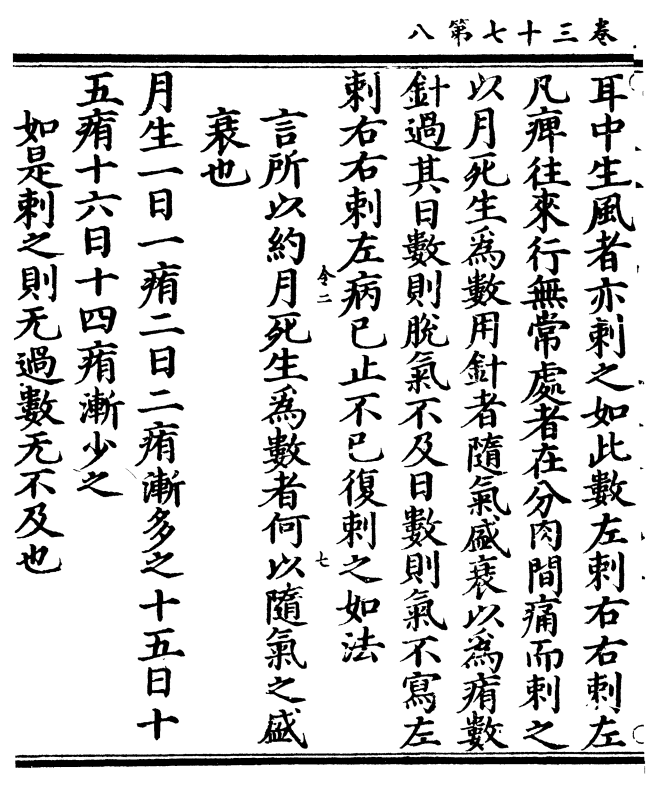 卷三十七第八
耳中生風者亦刺之如此數左刺右右刺左
凡痺往來行無常處者在分肉間痛而刺之
以月死生爲數用針者隨氣盛衰以爲痏數
針過其日數則脫氣不及日數則氣不寫左
刺右右刺左病已止不已復刺之如法
令二
七
言所以約月死生爲數者何以隨氣之盛
衰也
月生一日一痏二日二痏漸多之十五日十
五痏十六日十四痏漸少之
如是刺之則无過數无不及也